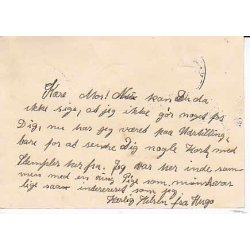 Kære Mos! Nu kan Du da
ikke sige, at jeg ikke gør noget for
Dig, nu har jeg været paa Udstilling,
bare for at sende Dig nogle Kort med
Stempler her fra. Jeg var her inde sam-
men med en ung Pige som, mærkværdig
lige saa interesseret som jeg.
Kærlig Hilsen fra Hugo